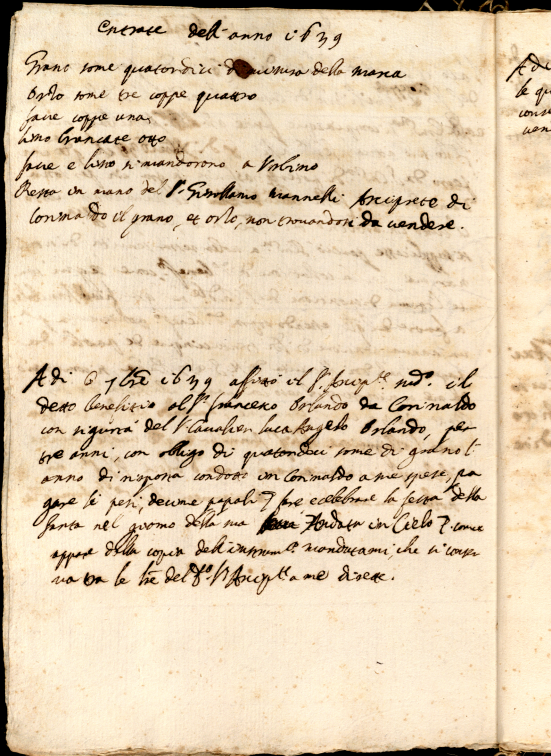 Entrate dell'anno 1639
Grano some quatordici di misura della marca
Orzo some tre coppe quattro
fave coppe una
lino brancate otto
fave e lino si mandorono a Urbino
Resta in mano del Sr Girollamo Mannelli Arciprete di
Corinaldo il grano, et orzo, non trovandosi da vendere.
A di 6 7bre 1639 affittò il Sr Arciprte nedo. il
detto Benefitio al Sr francesco Orlando da Corinaldo
con sigurtà del Sr Cavalier luca Angelo Orlando, per
tre anni, con obligo di quatordici some di grano l'
anno di risposta condotto in Corinaldo a sue spese, pa
gare li pesi, decime papali, fare celebrare la festa della
Santa nel giorno della sua Andata in Cielo, come
appare della copia dell'instrumto mandatami, che si conser
va tra le lre del do Sr Arciprte a me dirette.